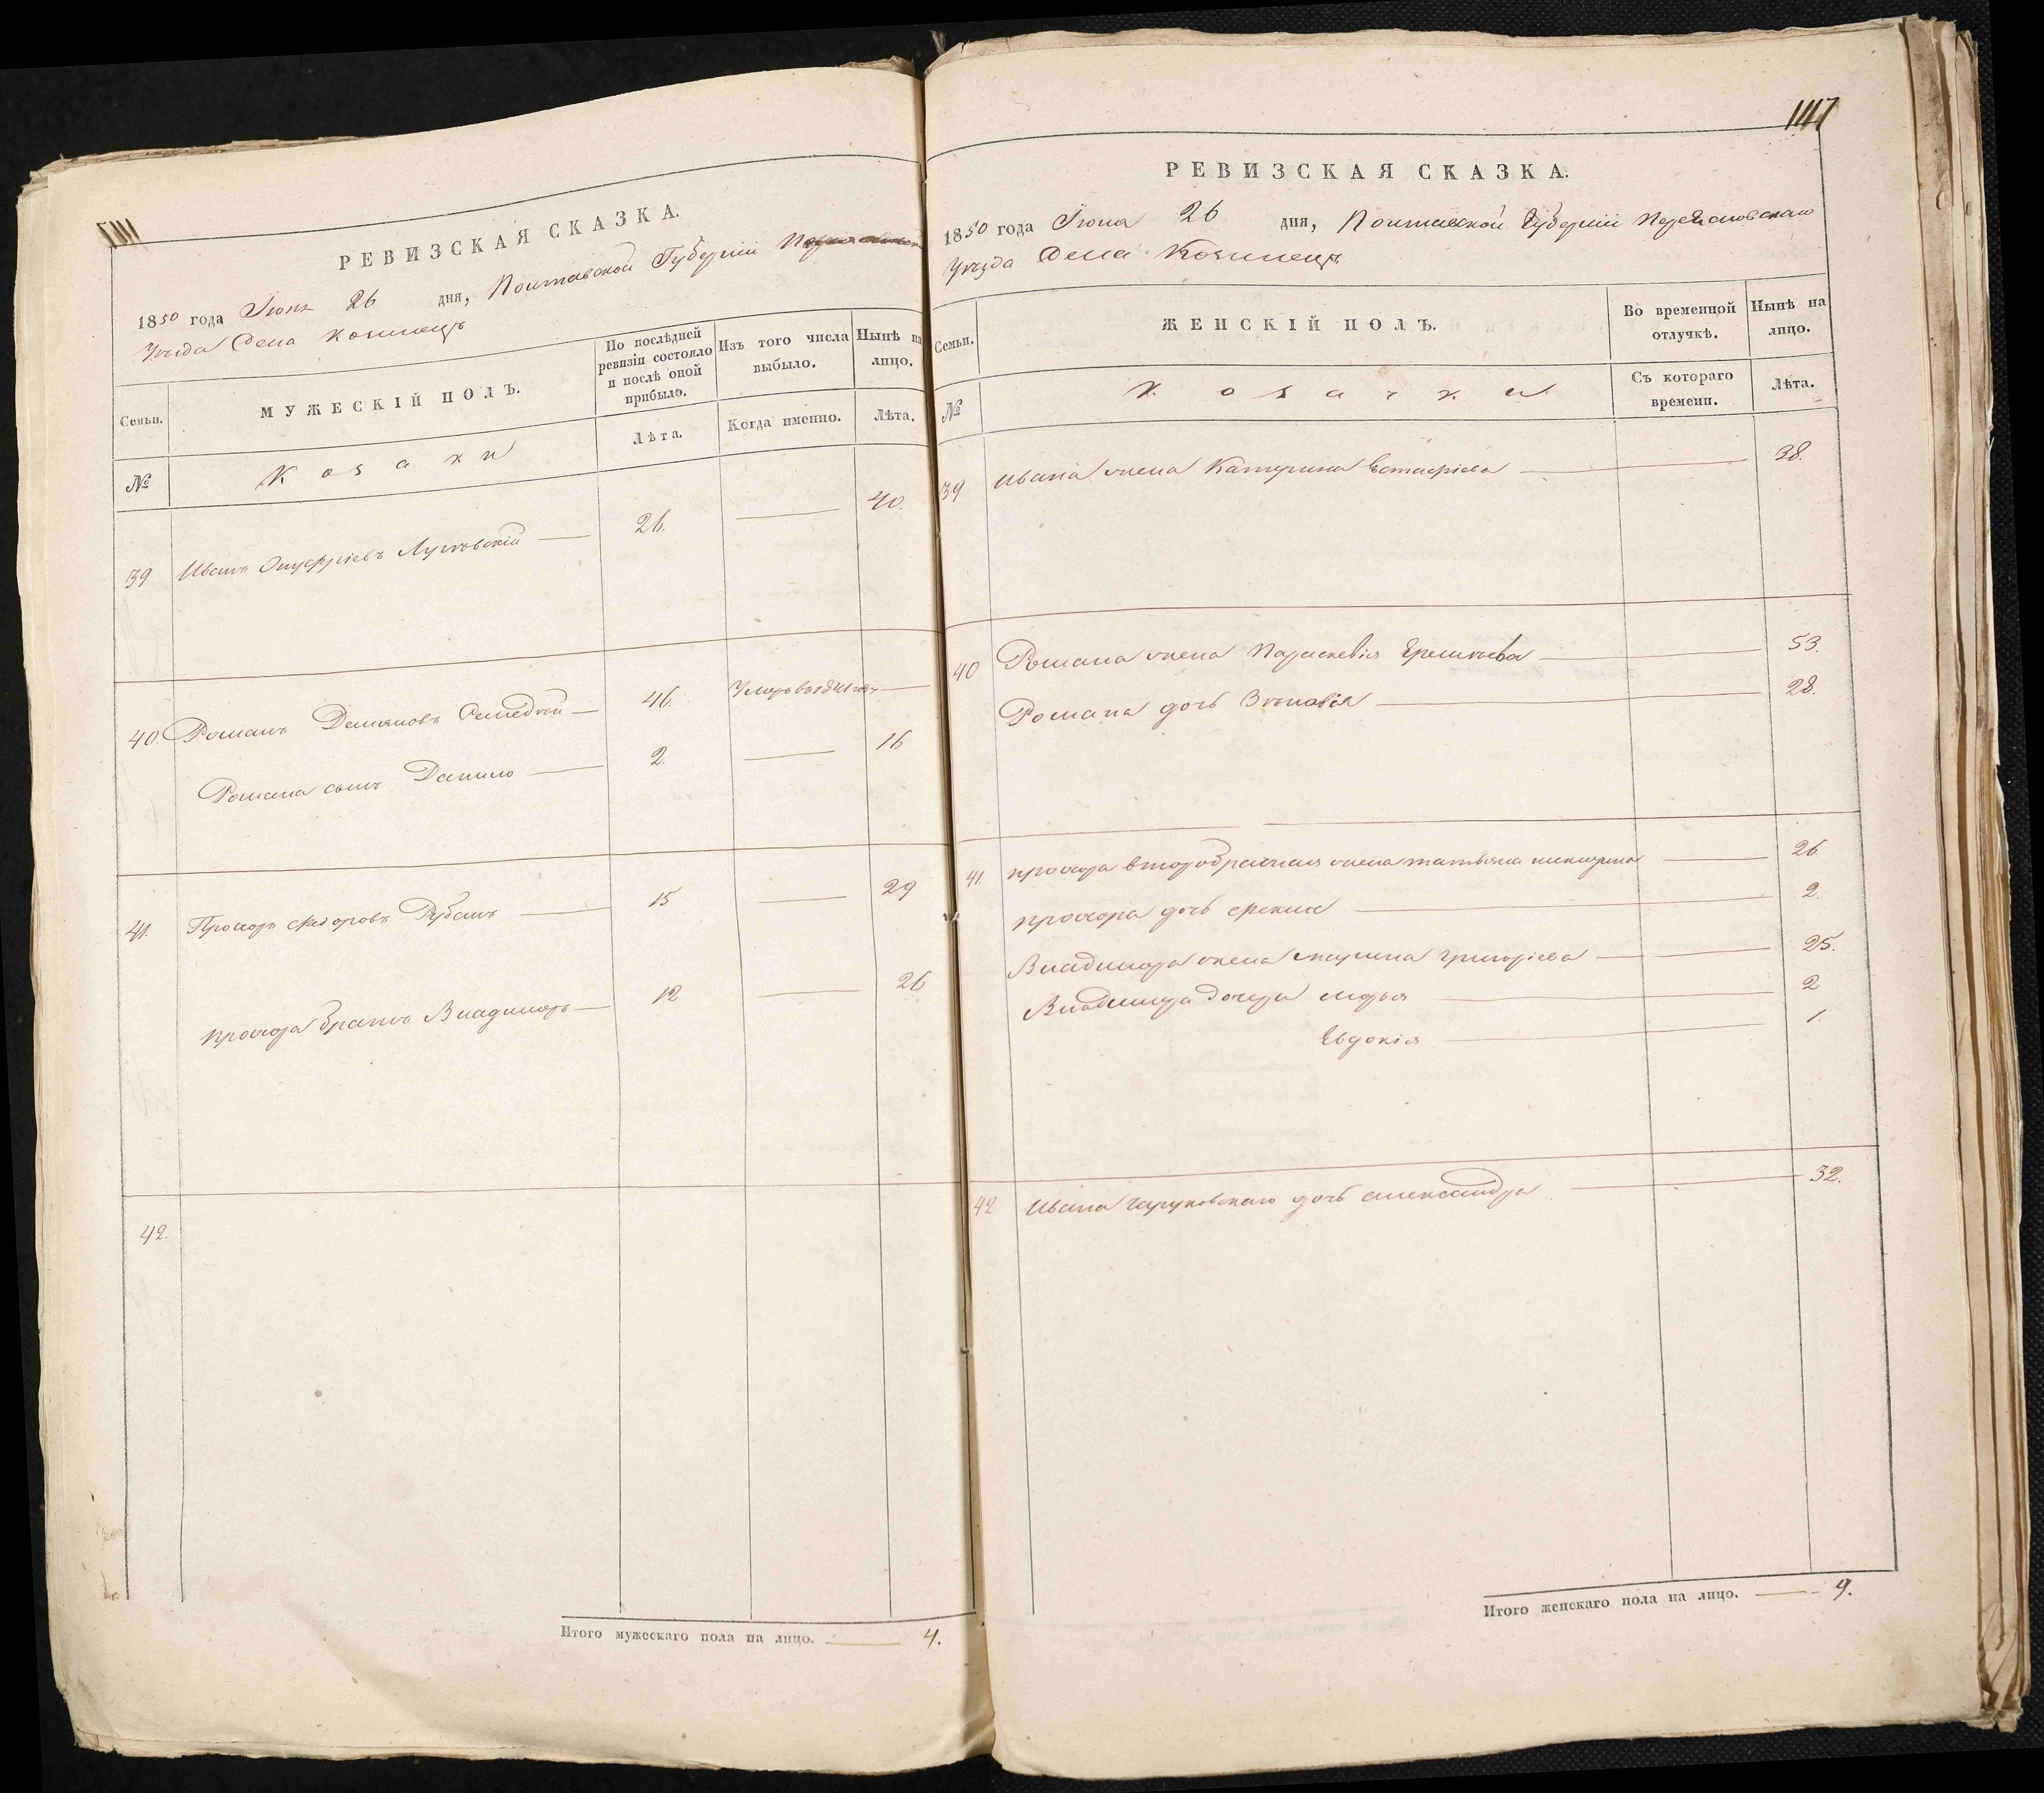 РЕВИЗСКАЯ СКАЗКА.
1850 года Июня 26 дня, Полтавской Губерніи
Уезда Села
Семьи.
МУЖЕСКІЙ ПОЛЪ.
По послѣдней ревизіи состояло и послѣ оной прибыло.
Изъ того числа выбыло.
Нынѣ на лицо.
№
Козаки
Лѣта.
Когда именно.
Лѣта.
39 Иванъ Онуфріевъ 26. 40.
40. Романъ Демяновъ 46. Умеръ въ году
Романа сынъ Данило 2. 16
41. Прохоръ Федоровъ Рубанъ 15 29
Прохора братъ Владимеръ 12 26
42.
Итого мужескаго пола на лицо. 4.
1117
РЕВИЗСКАЯ СКАЗКА.
1850 года Июня 26 дня, Полтавской Губерніи Переяславскаго
Уезда Села
Семьи.
ЖЕНСКІЙ ПОЛЪ.
Во временной отлучкѣ.
Нынѣ на лицо.
№
Козачки
Съ котораго времени.
Лѣта.
39 Ивана жена Катерина Евстафіева 38.
40 Романа жена Параскевія 53.
Романа дочь Зѣновія 28.
41. Прохора второбрачная жена татьяна 26
Прохора дочь 2.
Владимера жена марина григоріева 25.
Владимера дочери марья 2
Евдокія 1.
42 Ивана дочь александра 32.
Итого женскаго пола на лицо. 9.